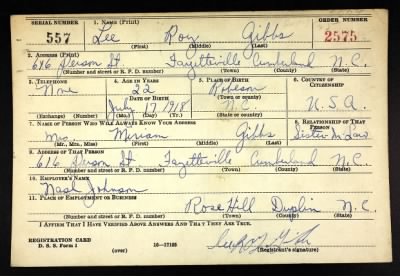 SERIAL NUMBER 1. NAME (Print) ORDER NUMBER
557 Lee Roy Gibbs 2575
(First) (Middle) (Last)
2. ADDRESS (Print)
616 St Fayetteville Cumberland N.C.
(Number and street or R. F. D. number) (Town) (County) (State)
3. TELEPHONE 4. AGE IN YEARS 5. PLACE OF BIRTH 6. COUNTRY OF CITIZENSHIP
None 22 Robeson
DATE OF BIRTH (Town or county)
July 17 1918 N.C. U.S.A.
(Exchange) (Number) (Mo.) (Day) (Yr.) (State or country)
7. NAME OF PERSON WHO WILL ALWAYS KNOW YOUR ADDRESS 8. RELATIONSHIP OF THAT PERSON
Mrs. Miriam Gibbs Sister in Law
(Mr., Mrs., Miss) (First) (Middle) (Last)
9. ADDRESS OF THAT PERSON
616 St Fayetteville Cumberland N.C.
(Number and street or R. F. D. number) (Town) (County) (State)
10. EMPLOYER'S NAME
Nash Johnson
11. PLACE OF EMPLOYMENT OR BUSINESS
Rose Hill Duplin N.C.
(Number and street or R. F. D. number) (Town) (County) (State)
I AFFIRM THAT I HAVE VERIFIED ABOVE ANSWERS AND THAT THEY ARE TRUE.
REGISTRATION CARD
D. S. S. Form 1 (over) 16—17105 (Registrant's signature)